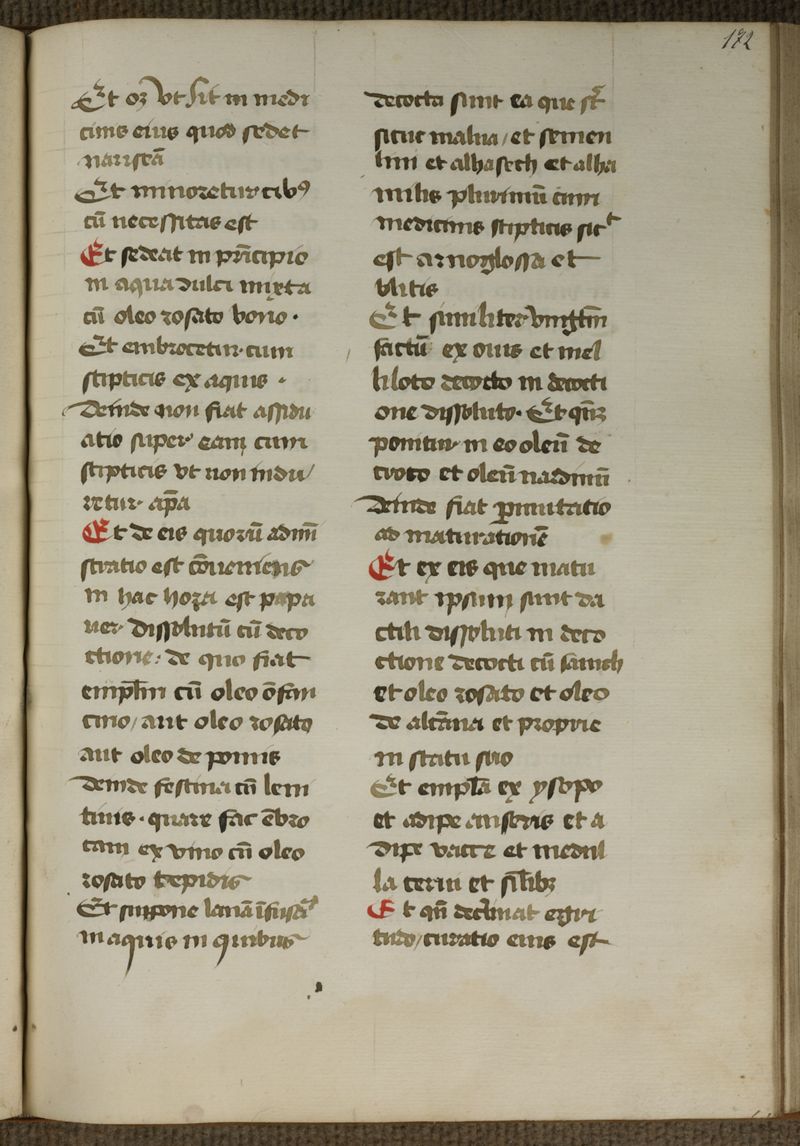 172
Et oꝫ vt sit in medi
cinis eius quod sedet
nariscã
Et minoretur cibꝰ
cũ necessitas est
Et sedeat in prĩcipio
in aqua dulci mixta
cũ oleo rosato bono ·
Et embrocetur cum
stipticis ex aquis ·
Deinde non fiat assidu
atio super eam cum
stipticis vt non indu
retur ap̃a
Et de eis quorũ admĩ
stratio est cõueniens
in hac hora est papa
uer dissolutũ cũ deco
ctione : de quo fiat
emplm̃ cũ oleo õfan
cino / aut oleo rosato
aut oleo de pomis
deinde festina cũ leni
tiuis · quare fac ẽbro
cam ex vino cũ oleo
rosato tepidis
Et suppone lanã ĩfusã
in aquis in quibus
decocta sint ea que st̃
sicut malua / et semen
lini et alhasech et alha
milis plurimũ cum
medicinis stipticis sict
est arnoglossa et
blitis
Et similiter vnigtm̃
factũ ex ouis et mel
liloto decocto in decocti
one dissoluto · Et qñꝫ
ponitur in eo oleũ de
croco et oleũ nardinũ
deinde fiat ꝑmutatio
ad maturationẽ
Et ex eis que matu
rant ipsum sunt da
ctili dissoluti in deco
ctione decocti cũ samch
et oleo rosato et oleo
de alcãna et proprie
in statu suo
Et emplã ex ysopo
et adipe anseris et a
dipe vacce et medul
la cerui et sĩlibꝫ
Et qñ declinat egri
tudo / curatio eius est